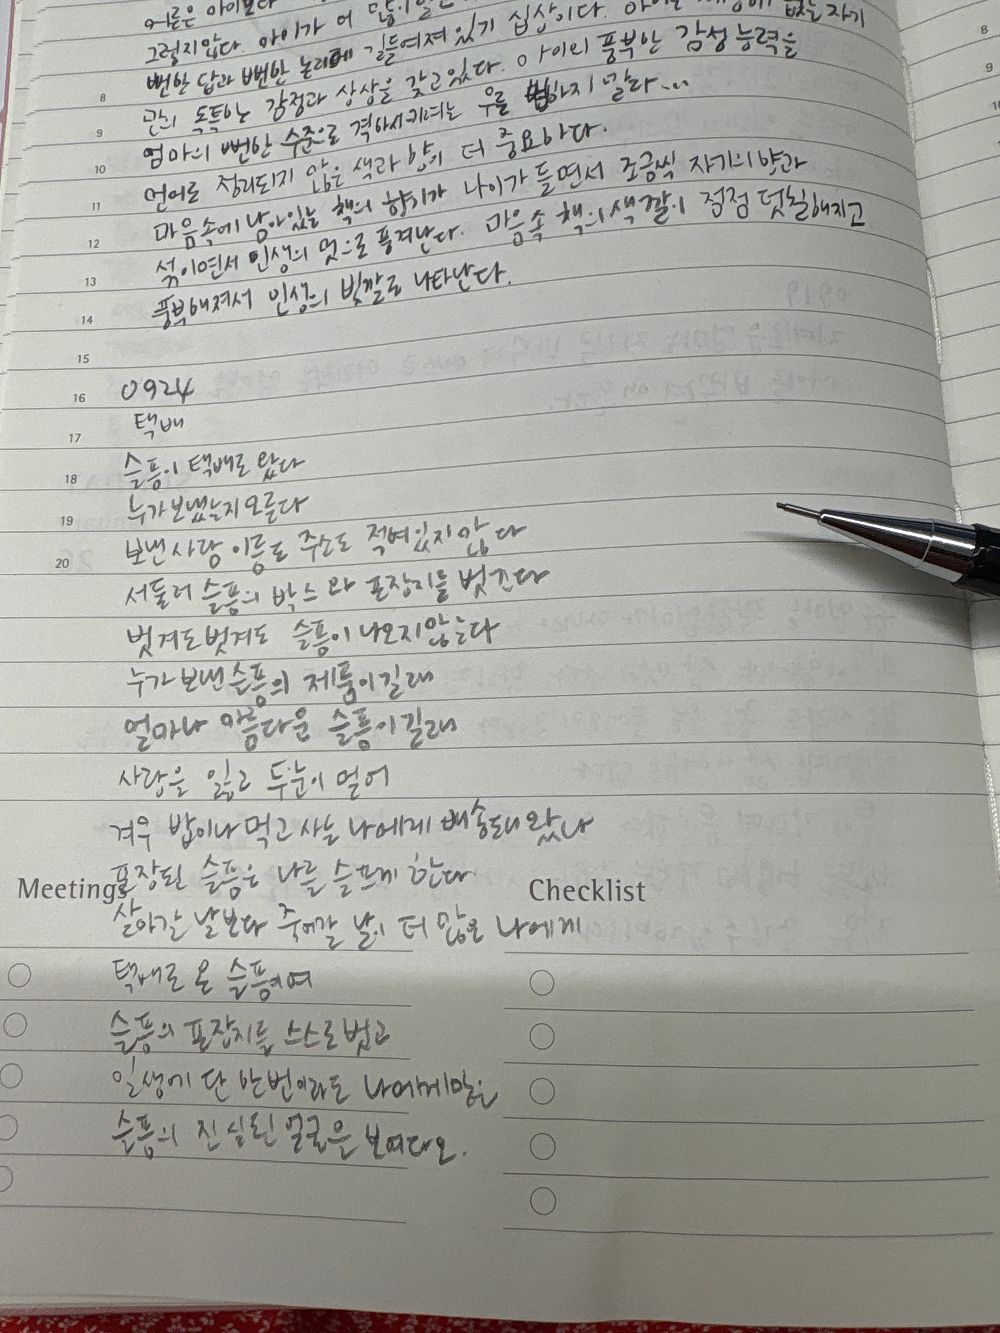 어른은 아이보다 더 많이 알
그렇지않다. 아이가 더 많이
뻔한 답과 뻔한 논리에 길들여져 있기 십상이다. 없는 자기
8 만의 독특한 감정과 상상을 갖고있다. 아이의 풍부한 감성 능력을
9 엄마의 뻔한 수준으로 격하시키려는 우를 범하지 말라...
10 언어로 정리되지 않은 색과 향기 더 중요하다.
11 마음속에 남아있는 책의 향기가 나이가 들면서 조금씩 자기의 향과
12 섞이면서 인생의 멋으로 풍겨난다. 마음속 책의 색깔이 점점 덧칠해지고
13 풍부해져서 인생의 빛깔로 나타난다.
14
15
16 0924
17 택배
18 슬픔이 택배로 왔다
19 누가 보냈는지 모른다
20 보낸 사람 이름도 주소도 적혀있지 않다
서둘러 슬픔의 박스와 포장지를 벗긴다
벗겨도 벗겨도 슬픔이 나오지 않는다
누가 보낸 슬픔의 제품이길래
얼마나 아름다운 슬픔이길래
사랑을 잃고 두눈이 멀어
겨우 밥이나 먹고 사는 나에게 배송돼 왔나
포장된 슬픔은 나를 슬프게 한다
Meetings
Checklist
살아갈 날보다 죽어갈 날이 더 많은 나에게
택배로 온 슬픔이여
슬픔의 포장지를 스스로 벗고
일생에 단 한번이라도 나에게만은
슬픔의 진실된 얼굴을 보여다오.